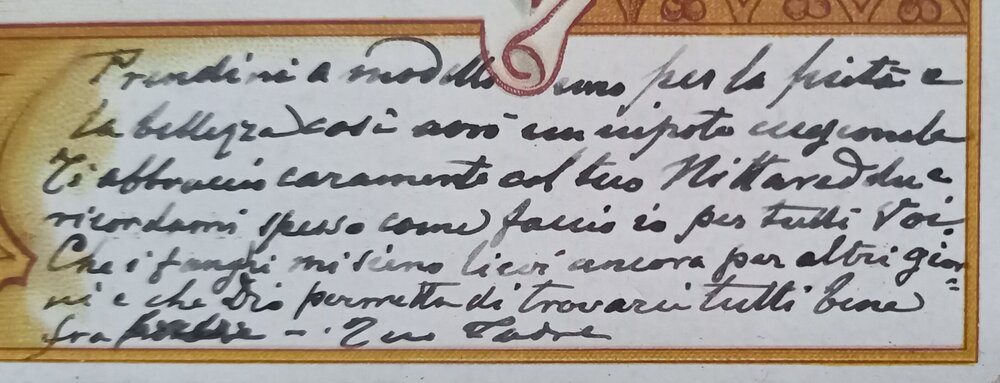 Prendini a modello uno per la pietà e
la bellezza così avrò un nipote eugionale
Ti abbraccio caramente col tuo Nittareddu e
ricordami spesso come faccio io per tutti Voi.
Che i fanghi mi siano lievi ancora per altri gior=
ni e che Dio permetta di trovarci tutti bene
fra - Tuo Padre